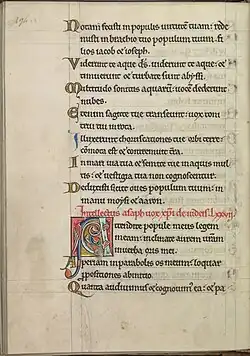 Notam fecisti in populis uirtutem tuam: rede
misti in brachio tuo populum tuum. fi
lios iacob et ioseph.
Viderunt te aque ds. uiderunt te aque: et
timuerunt et turbate sunt abyssi.
Multitudo sonitus aquarū: uocē dederunt
nubes.
Etenim sagitte tue transeunt: uox toni
trui tui in rota.
Illuxerunt choruscationes tue orbi terre:
cōmota est et contremuit tr̄a.
In mari uia tua et semite tue in aquis mul
tis: et uestigia tua non cognoscentur.
Deduxisti sicut oues populum tuum: in
manu moysi et aaron.
Intellectus asaph uox xp̄i de iudeis lxxvii
Attendite popule meus legem
meam: inclinate aurem ur̄am
in uerba oris mei.
Aperiam in parabolis os meum: loquar
ppositiones ab initio.
Quanta audiuimus et cognouim' ea: et pa